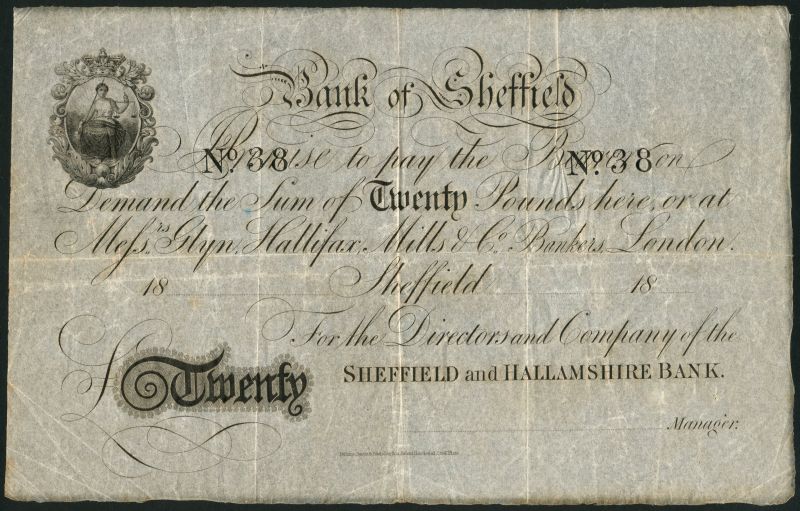 Bank of Sheffield
I Promise to pay the Bearer on
No. 38 No. 38
Demand the Sum of Twenty Pounds here, or at
Mess.rs Glyn, Hallifax, Mills & Co. Bankers, London.
18 Sheffield 18
For the Directors and Company of the
£ Twenty
SHEFFIELD and HALLAMSHIRE BANK.
Manager.